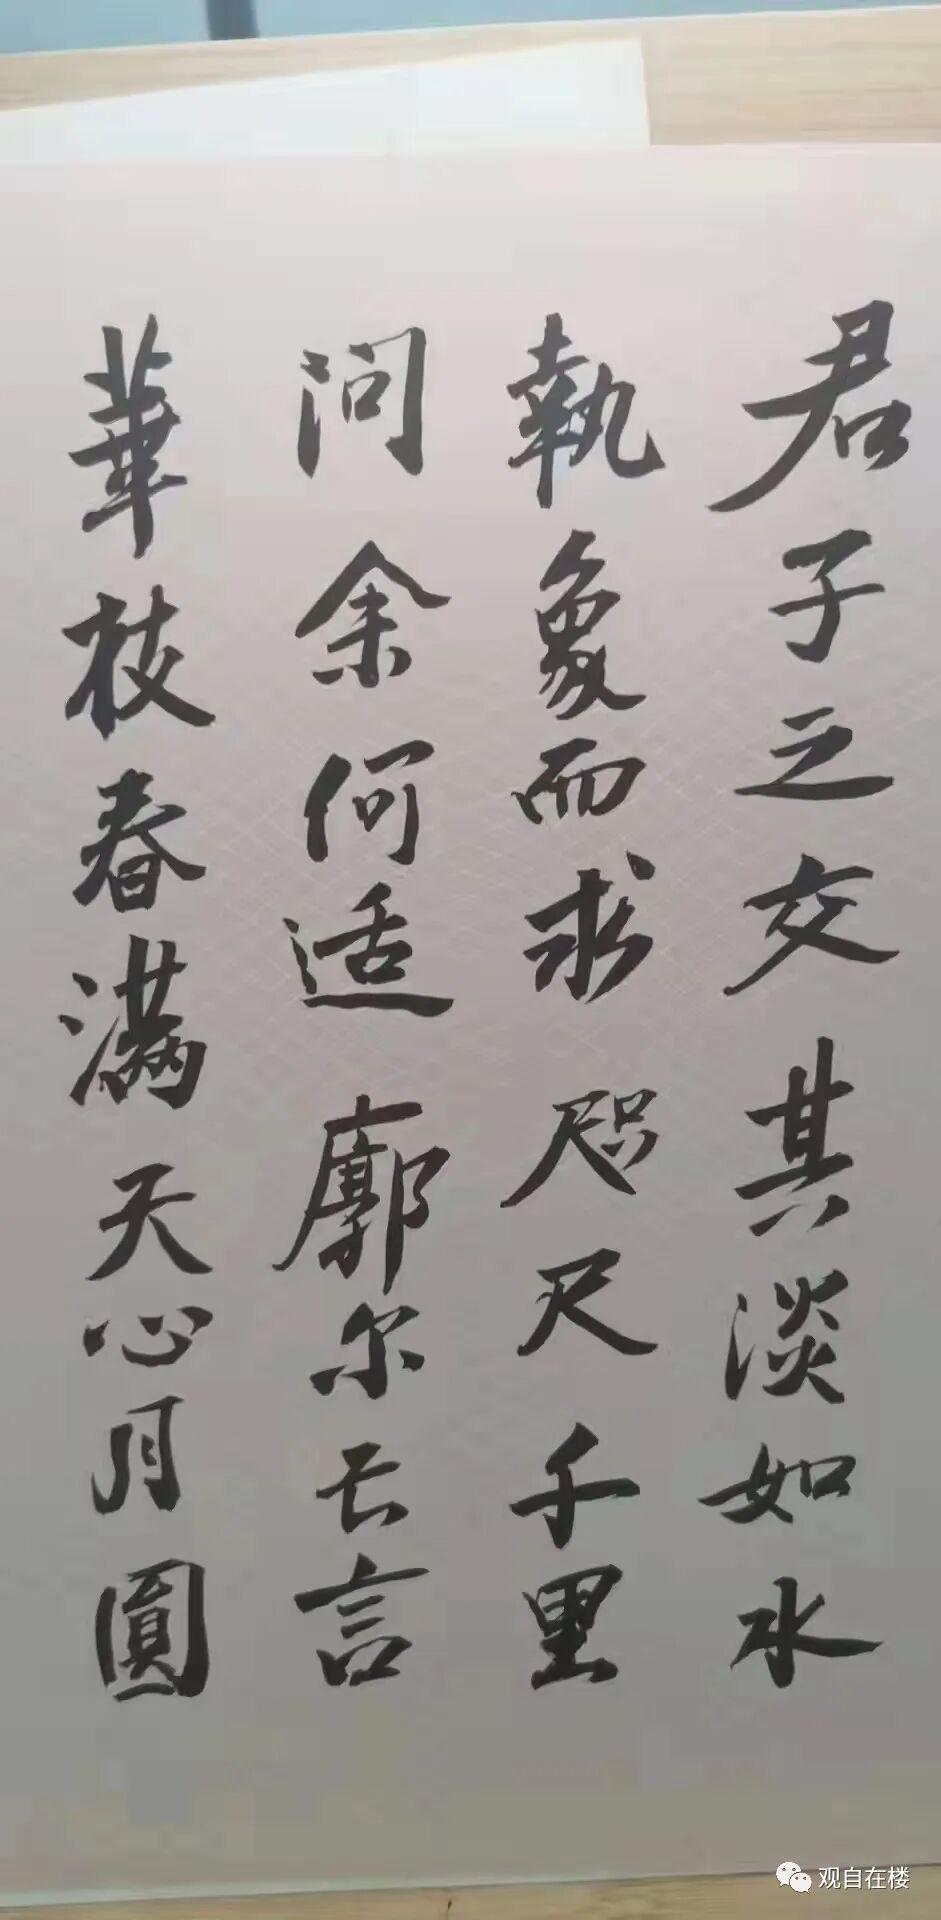 君子之交其淡如水
執象而求咫尺千里
问余何适廓尔亡言
華枝春满天心月圓
观自在楼